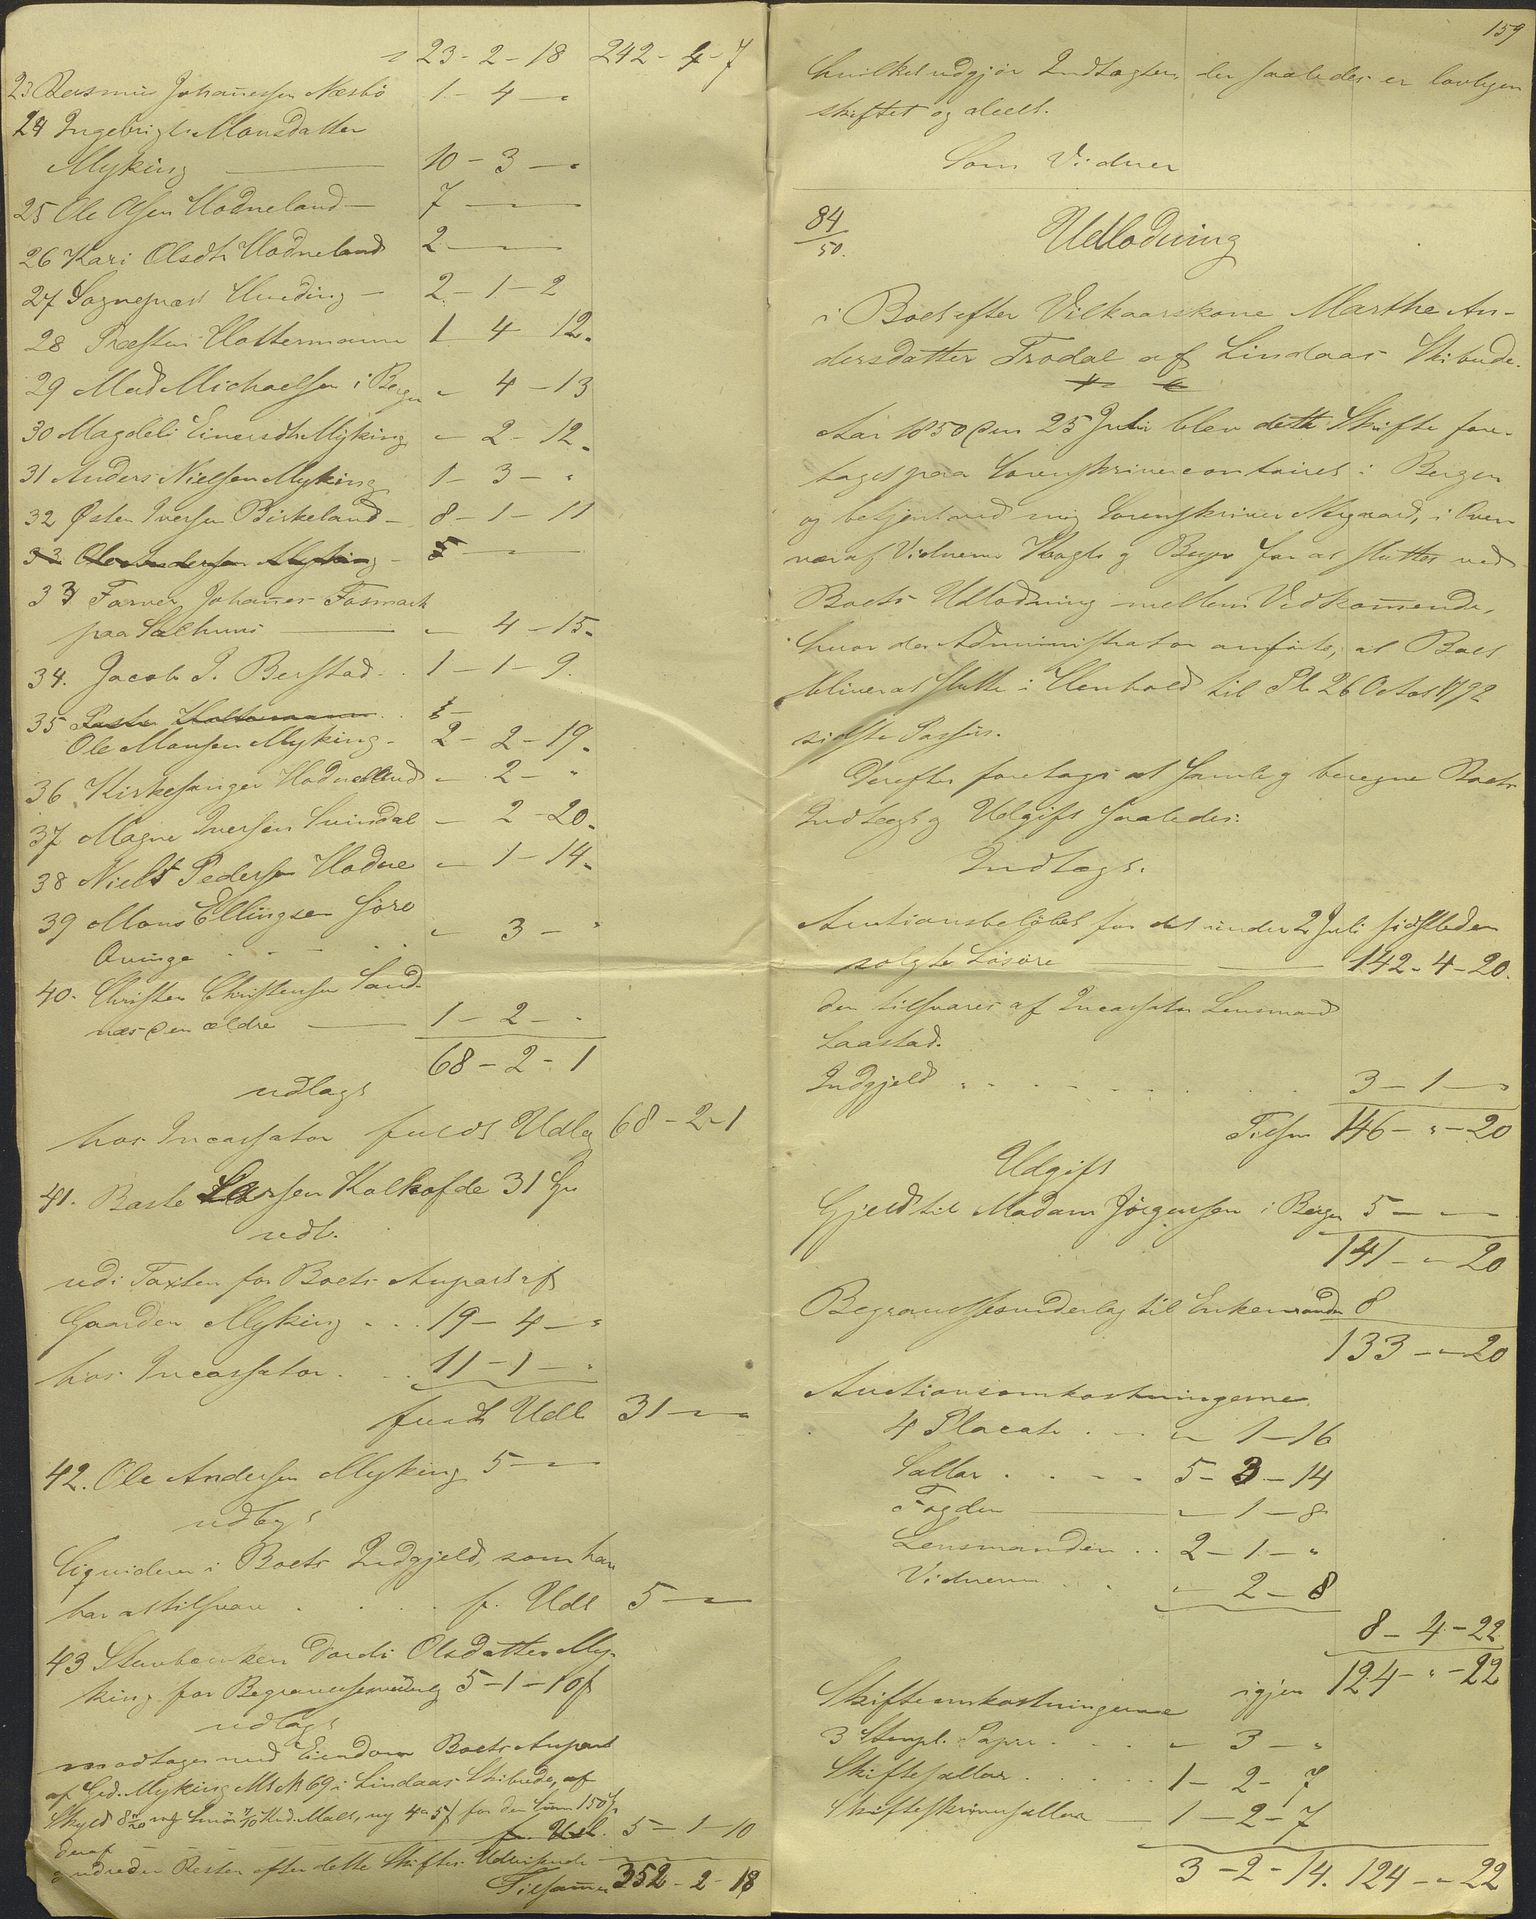 23 - 2 - 18 242 - 4 - 7
23 Rasmus Johannessen Næsbø 1 - 4 - "
24 Ingebrigt Monsdatter
Myking 10 - 3 - "
25 Ole Olsen Hodneland 7 - - -
26 Kari Olsdtr Hodneland 2 - -
27 Sognepræst Uneding 2 - 1 - 2
28 Præsten Holtermann 1 4 - 12
29 Mad Michaelsen i Bergen " 4 - 13
30 Magdeli Einersdtr Myking " - 2 - 12
31 Anders Nielsen Myking 1 - 3 - "
32 Østen Iversen Birkeland 8 - 1 - 11
33 Ole Andersen Myking 5 - -
33 Farver Johannes Fosmark
paa Salhuus " 4 - 15
34. Jacob J. Berstad 1 - 1 - 9
35 Holtermann
Ole Monsen Myking 2 - 2 - 19
36 Kirkesanger Hodneland " - 2 - "
37 Magne Iversen Svindal " 2 - 20
38 Niels Pedersen Hodne " 1 - 14
39 Mons Ellingsen Søre
Qvinge " 3 - "
40. Christen Christensen Sand-
næs den ældre 1 - 2 - "
68 - 2 - 1
udlagt
hos Incassator fuldt Udlæg 68 - 2 - 1
41. Baste Larsen Kolkofde 31 Sp
udl.
udi Taxten for Boets Anpart af
Gaarden Myking 19 - 4 - "
hos Incassator 11 - 1 - "
fuldt Udl 31 - " - "
42. Ole Andersen Myking 5 - -
udlagt
liqviderer i Boets Indgjeld, som han
har at tilsvare f. Udl 5 - -
43 Stervboenken Dordi Olsdatter My-
king for Begravelsesudlæg 5 - 1 - 10 f
udlagt
modtager med Eiendom Boets Anpart
af Grd. Myking M No 69 i Lindaas Skibrede, af
Skyld Smør Hud. Malt, ny for den Sum 150 Sp
deraf f. Udl. 5 - 1 - 10
Resten efter dette Skiftes Udvisende
Tilsammen 352 - 2 - 18
159
hvilket udgjør Indtægten, der saaledes er lovligen
skiftet og deelt.
Som Vidner
84/50.
Udlodning
i Boet efter Vilkaarskone Marthe An-
dersdatter Trodal af Lindaas Skibrede.
Aar 1850 den 25 Juli blev dette Skifte fore-
taget paa Sorenskrivercontoiret i Bergen
og betjent ved mig Sorenskriver Nergaard, i Over-
vær af Vidnerne Vogt og Beyer for at sluttes ved
Boets Udlodning mellem Vedkommende,
hvor da Administrator anførte, at Boet
bliver at slutte i Henhold til Pl 26 Octbr 1792
sidste Passus.
Derefter foretoges at samle og beregne Boets
Indtægt og Udgift saaledes:
Indtægt.
Auctionsbeløbet for det under 2 Juli sidstleden
solgte Løsøre 142 - 4 - 20.
der tilsvares af Incassator Lensmand
Laastad.
Indgjeld 3 - 1 - "
Tilsm 146 - " - 20
Udgift
Gjeld til Madam Jørgensen i Bergen 5 - " -
141 - " - 20
Begravelsesudlæg til Enkemanden 8
133 - " - 20
Auctionsomkostningerne
4 Placat " 1 - 16
Sallar 5 - 3 - 14
Fogden " 1 - 8
Lensmanden 2 - 1 - "
Vidnerne " 2 - 8
8 - 4 - 22
igjen 124 - " - 22
Skifteomkostningerne
3 Stempl. Papir " 3 - "
Skiftesallar 1 - 2 - 7
Skifteskriversallar 1 - 2 - 7
3 - 2 - 14. 124 - " - 22